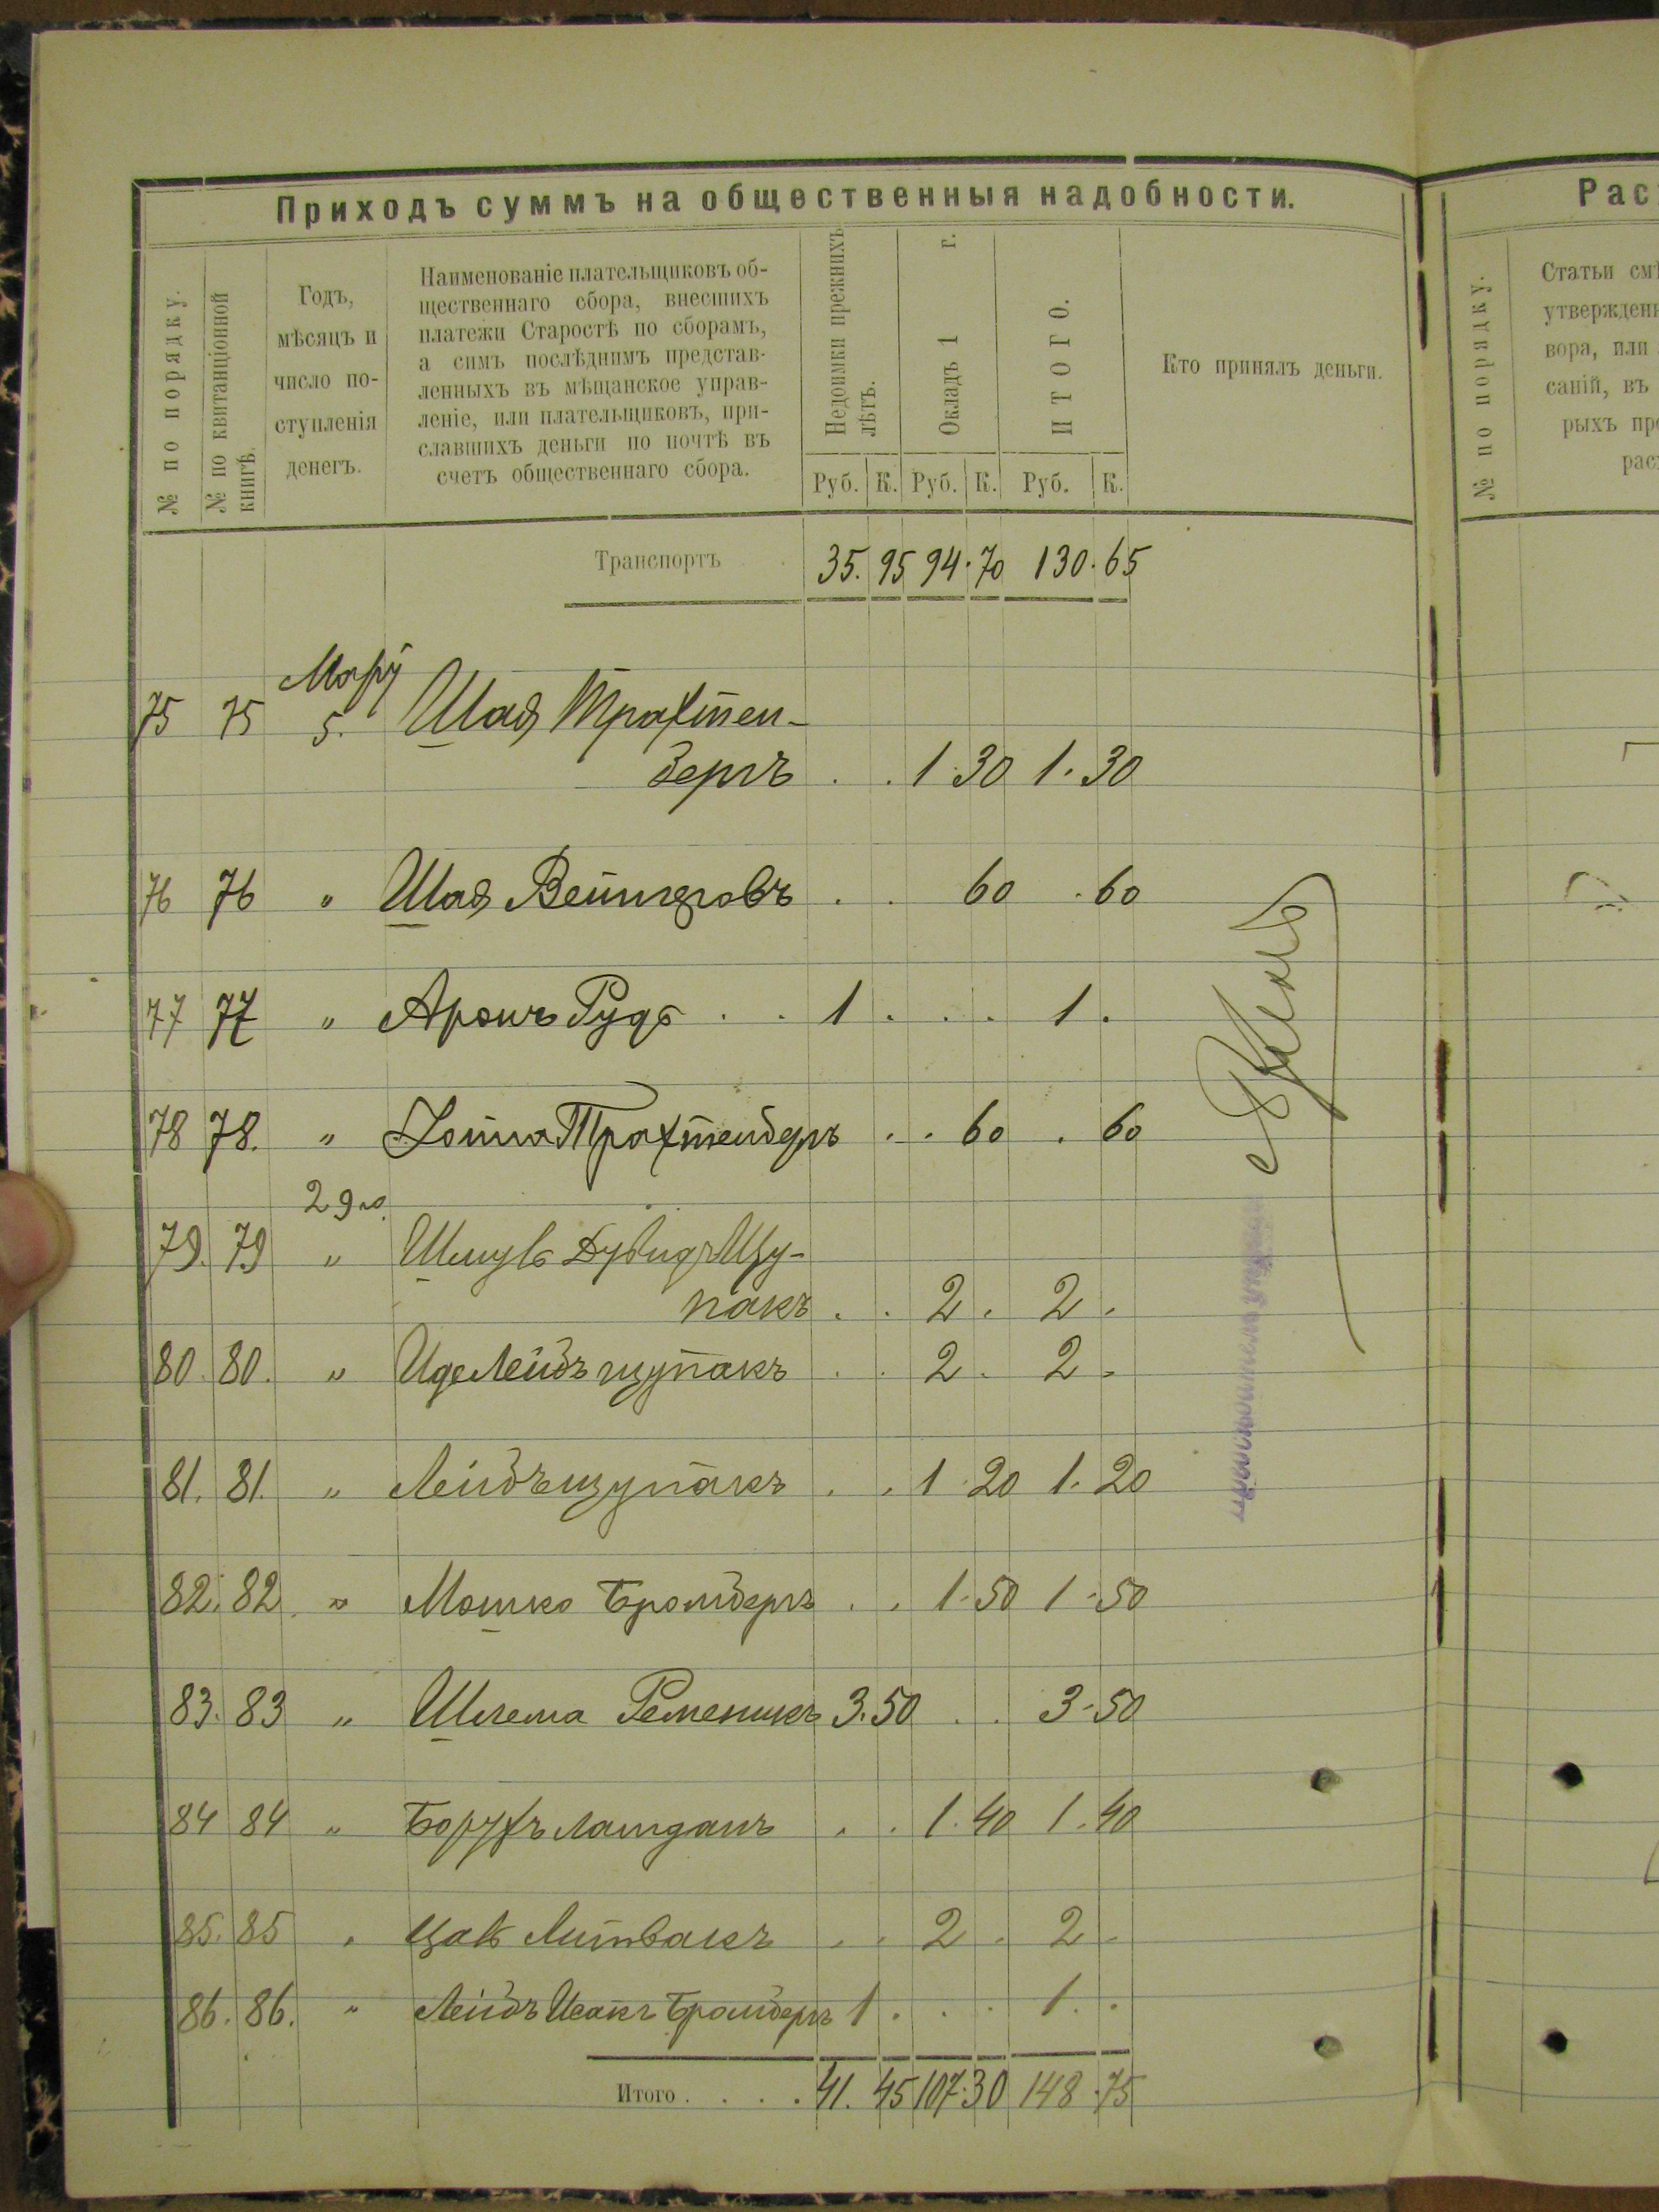 Приходъ суммъ на общественныя надобности.
№ по порядку.
№ по квитанціонной
книгѣ.
Годъ,
мѣсяцъ и
число по-
ступленія
денегъ.
Наименованіе плательщиковъ об-
щественнаго сбора, внесшихъ
платежи Старостѣ по сборамъ,
а симъ послѣднимъ представ-
ленныхъ въ мѣщанское управ-
леніе, или плательщиковъ, при-
славшихъ деньги по почтѣ въ
счетъ общественнаго сбора.
Недоимки прежнихъ
лѣтъ.
Окладъ 1 г.
ИТОГО.
Кто принялъ деньги.
Руб. К. Руб. К. Руб. К.
Транспортъ 35. 95 94. 70 130. 65
75 75 5. Шая Трахтен-
бергъ . . 1 30 1. 30
76 76 " Шая . . 60 . 60
77 77 " Аронъ Руда . . 1 . . . 1 .
78 78. " Трахтенбергъ . . 60 . 60
79. 79 " Шмуль Дувидъ Щу-
пакъ . . 2 . 2 .
80. 80. " Лейбъ щупакъ . . 2 . 2 .
81. 81. " Лейбъ щупакъ . . 1 20 1. 20
82. 82. " Мошко Бромбергъ . . 1. 50 1. 50
83. 83 " Шлема Ременикъ 3. 50 . . 3. 50
84 84 " Борухъ Ландманъ . . 1. 40 1. 40
85. 85 " Литвакъ . . 2 . 2 .
86. 86. " Лейбъ Исакъ Бромбергъ 1 . . . 1 . .
Итого . . . . 41. 45 107. 30 148. 75
Рас
№ по порядку.
Статьи смѣ
утвержден
вора, или
саній, въ
рыхъ пр
рас